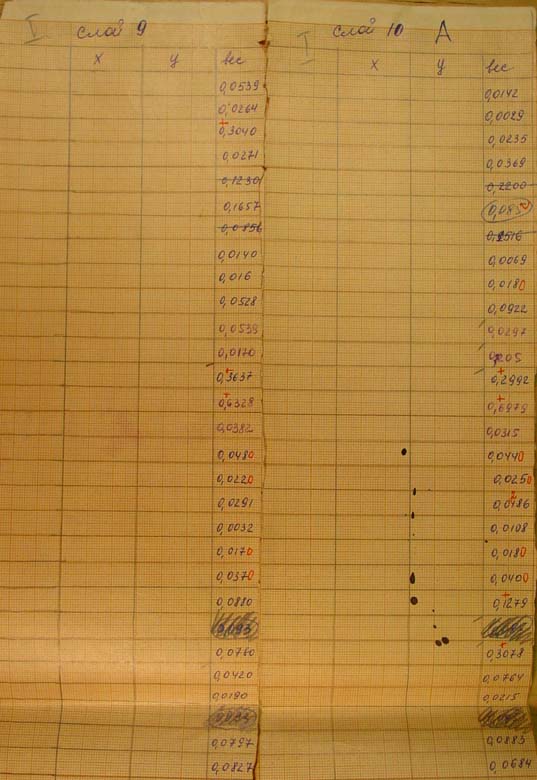 I слой 9
х у вес
0,0539
0,0264
0,3040
0,0271
0,1230
0,1657
0,0856
0,0140
0,016
0,0528
0,0539
0,0170
0,3637
0,6328
0,0382
0,0480
0,0220
0,0291
0,0032
0,0170
0,0370
0,0880
0,0760
0,0420
0,0190
0,0797
0,0827
I слой 10 А
х у вес
0,0142
0,0029
0,0235
0,0369
0,2200
0,0069
0,0180
0,0922
0,0297
0,2992
0,6979
0,0315
0,0440
0,0250
0,0108
0,0180
0,0400
0,1279
0,3078
0,0764
0,0215
0,0883
0,0684